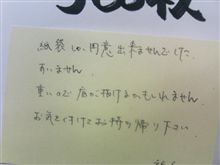 紙袋しか用意出来ませんでした
すいません。
重いので底が抜けるかもしれません。
お気を付けてお持ち帰り下さい。